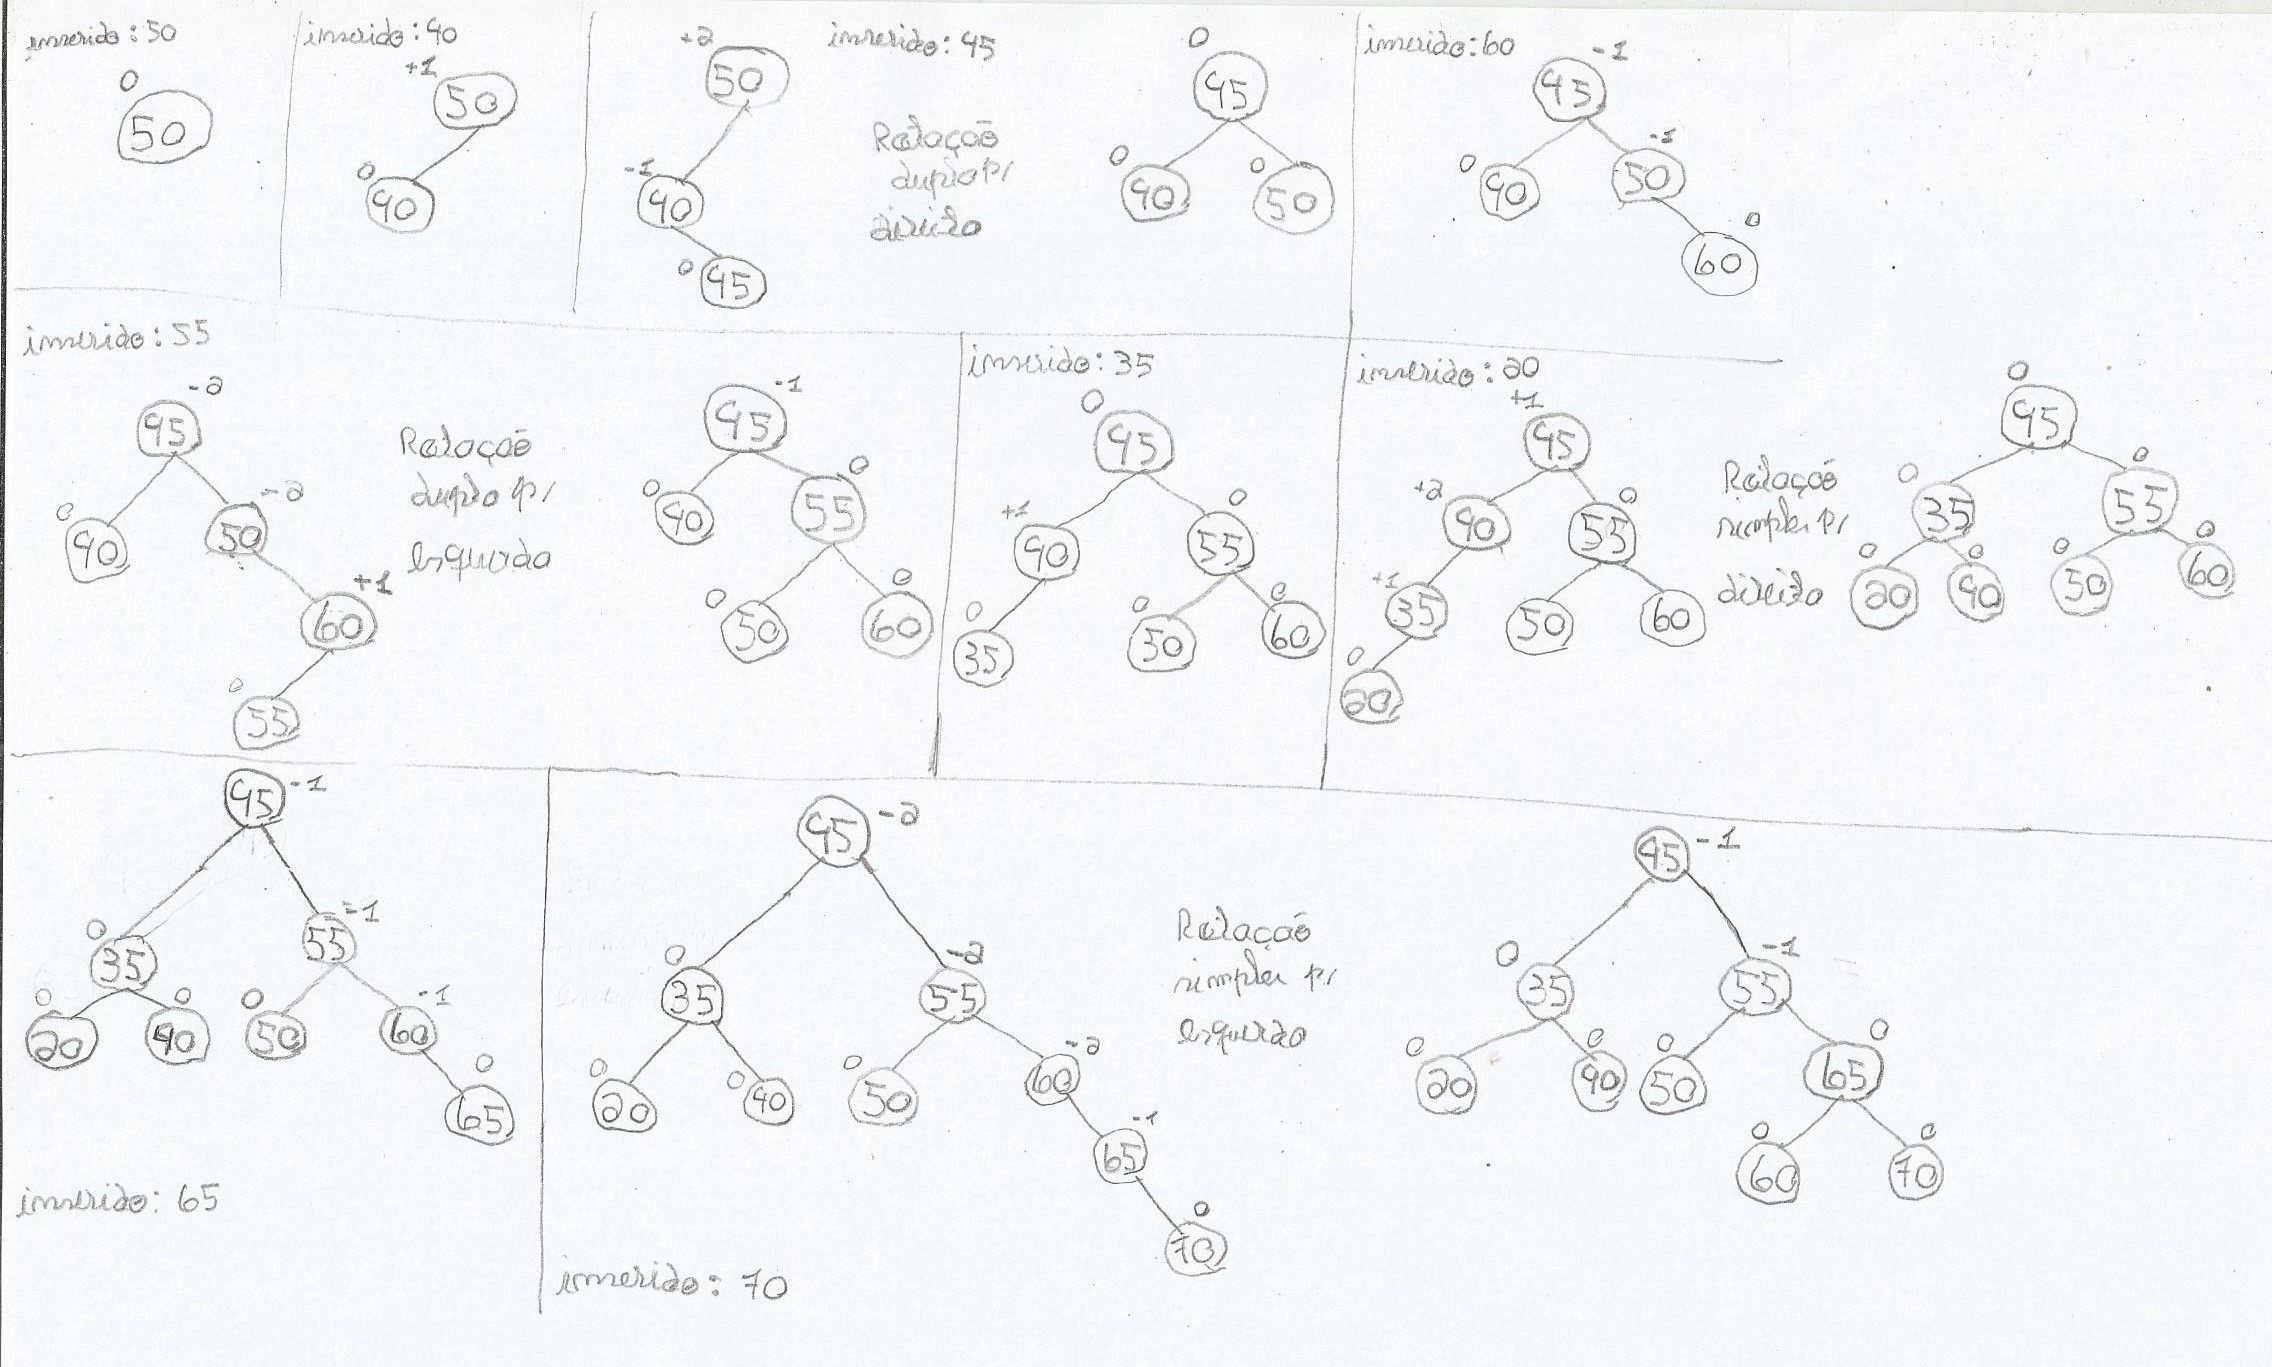 inserido: 50
0
50
inserido: 40
+1
50
0
40
inserido: 45
+2
50
-1
40
0
45
Rotação
dupla p/
direita
0
45
0
40
0
50
inserido: 60
-1
45
0
40
-1
50
0
60
inserido: 55
-2
45
0
40
-2
50
+1
60
0
55
Rotação
dupla p/
esquerda
-1
45
0
40
0
55
0
50
0
60
inserido: 35
0
45
+1
40
0
55
0
35
0
50
0
60
inserido: 20
+1
45
+2
40
0
55
+1
35
50
60
0
20
Rotação
simples p/
direita
0
45
0
35
0
55
0
20
0
40
0
50
0
60
45 -1
0
35
-1
55
0
20
0
40
0
50
-1
60
0
65
inserido: 65
45 -2
0
35
-2
55
0
20
0
40
0
50
-2
60
-1
65
0
70
inserido: 70
Rotação
simples p/
esquerda
45 -1
0
35
-1
55
0
20
0
40
0
50
0
65
0
60
0
70